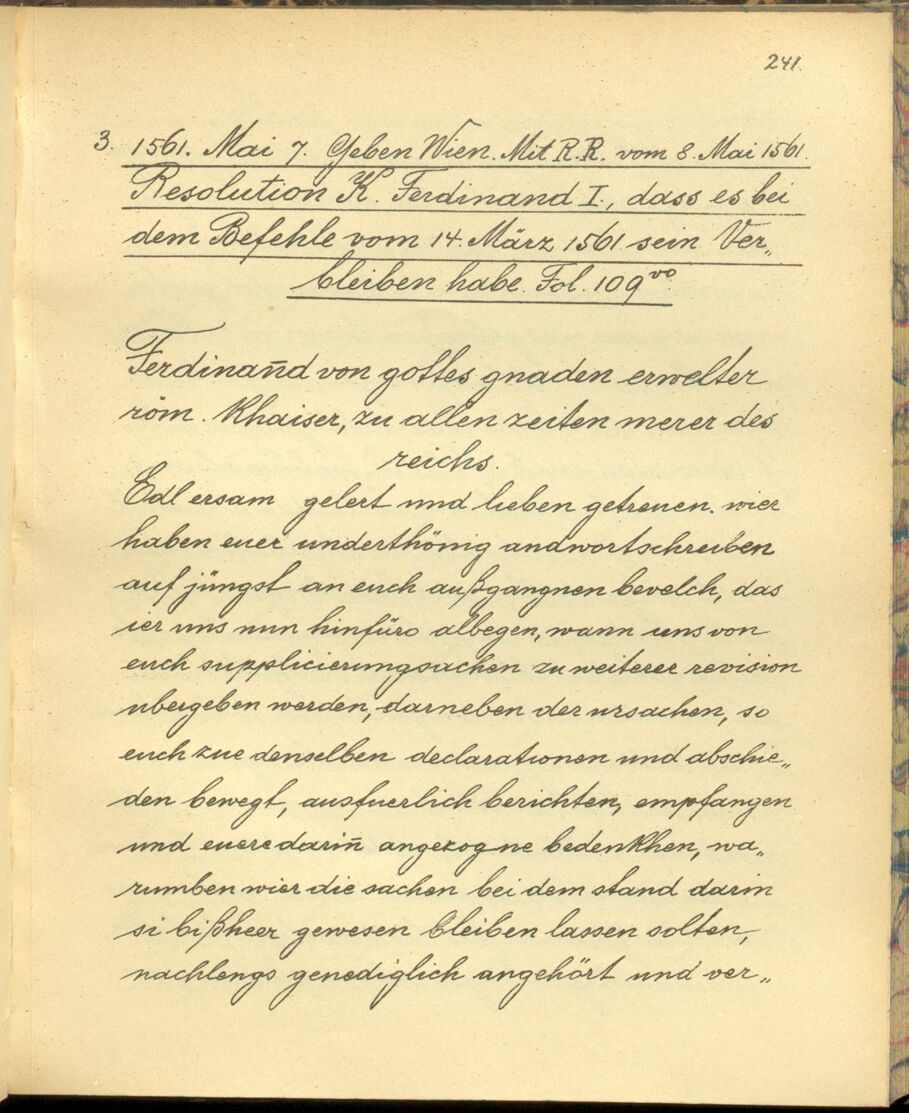 241.
3. 1561. Mai 7. Geben Wien. Mit R. R. vom 8. Mai 1561.
Resolution K. Ferdinand I., dass es bei
dem Befehle vom 14. März 1561 sein Ver„
bleiben habe. Fol. 109vo
Ferdinañd von gottes gnaden erwelter
röm. Khaiser, zu allen zeiten merer des
reichs.
Edl ersam gelert und lieben getreuen. wier
haben euer underthönig andwortschreiben
auf jüngst an euch außgangnen bevelch, das
ier uns nun hinfüro albegen, wann uns von
euch supplicierungsachen zu weiterer revision
ubergeben werden, darneben der ursachen, so
euch zue denselben declarationen und abschie„
den bewegt, ausfuerlich berichten, empfangen
und euere darin̄ angezogne bedenkhen, wa„
rumben wier die sachen bei dem stand darin
si bißheer gewesen bleiben lassen solten,
nachlengs genediglich angehört und ver„